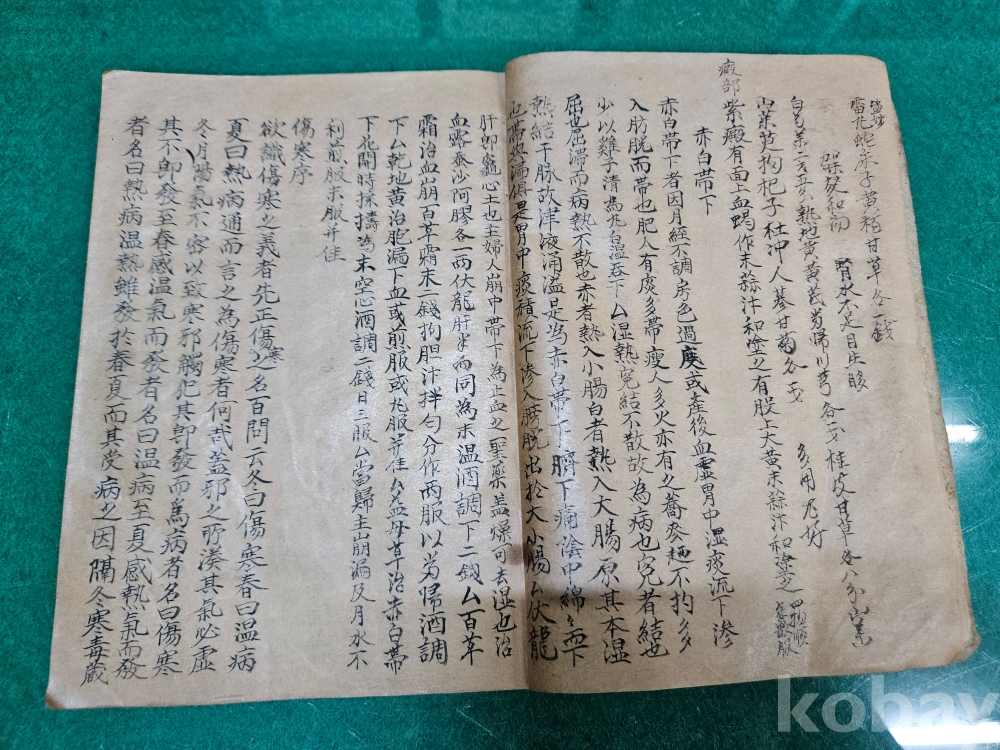 雷丸 蛇床子 黃栢 甘草 各一錢
腎水不足目生
山茱 芎 拘杞子 杜冲 人蔘 甘菊 各
多用尤好
癜部
紫癜有面上血蝎作末蒜汁和塗之有股上大黃末蒜汁和塗之
赤白帶下
赤白帶下者因月經不調房色過度或產後血虛胃中湿痰流下滲
入肪胱而帶也肥人有痰多帶瘦人多火亦有之蕎麥麵不拘多
少以雞子清為丸白温吞下厶湿熱寃結不散故為病也寃者結也
屈也屈滞而病熱不散也赤者熱入小腸白者熱入大腸原其本湿
熱結于脉故津液涌溢是為赤白帶下臍下痛陰中綿々而下
也帶與漏俱是胃中痰積流下滲入膀胱出於大小腸厶伏龍
肝卽竈心土也主婦人崩中帶下為止血之聖藥盖燥可去湿也治
血露蚕沙阿膠各一兩伏龍肝半兩同為末温酒調下二錢厶百草
霜治血崩百草霜末二錢狗胆汁拌匀分作兩服以當歸酒調
下厶乾地黃治胞漏下血或煎服或丸服并佳厶益母草治赤白帶
下花開時採擣為末空心酒調二錢日三服厶當歸主崩漏及月水不
利前服末服并佳
傷寒序
欲識傷寒之義者先正傷寒之名百問云冬曰傷寒春曰温病
夏曰熱病通而言之為傷寒者何哉盖邪之所湊其氣必虛
冬月陽氣不密以致寒邪觸犯其卽發而為病者名曰傷寒
其不卽發至春感温氣而發者名曰温病至夏感熱氣而發
者名曰熱病温熱雖發於春夏而其受病之因隔冬寒毒藏
kobay